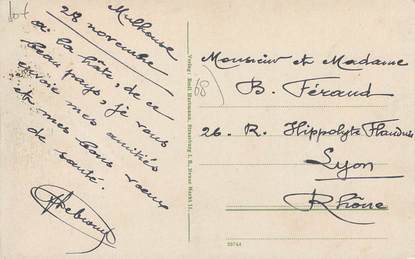 Mulhouse
28 novembre
à la hâte, de ce
beau pays, je vous
envoie mes amitiés
et mes bons voeux
de santé.
Verlag: Emil Hartmann, Strassburg i. E., Neuer Markt 11.
68
Monsieur et Madame
B. Féraud
26. R. Hippolyte Flandrin
Lyon
Rhône